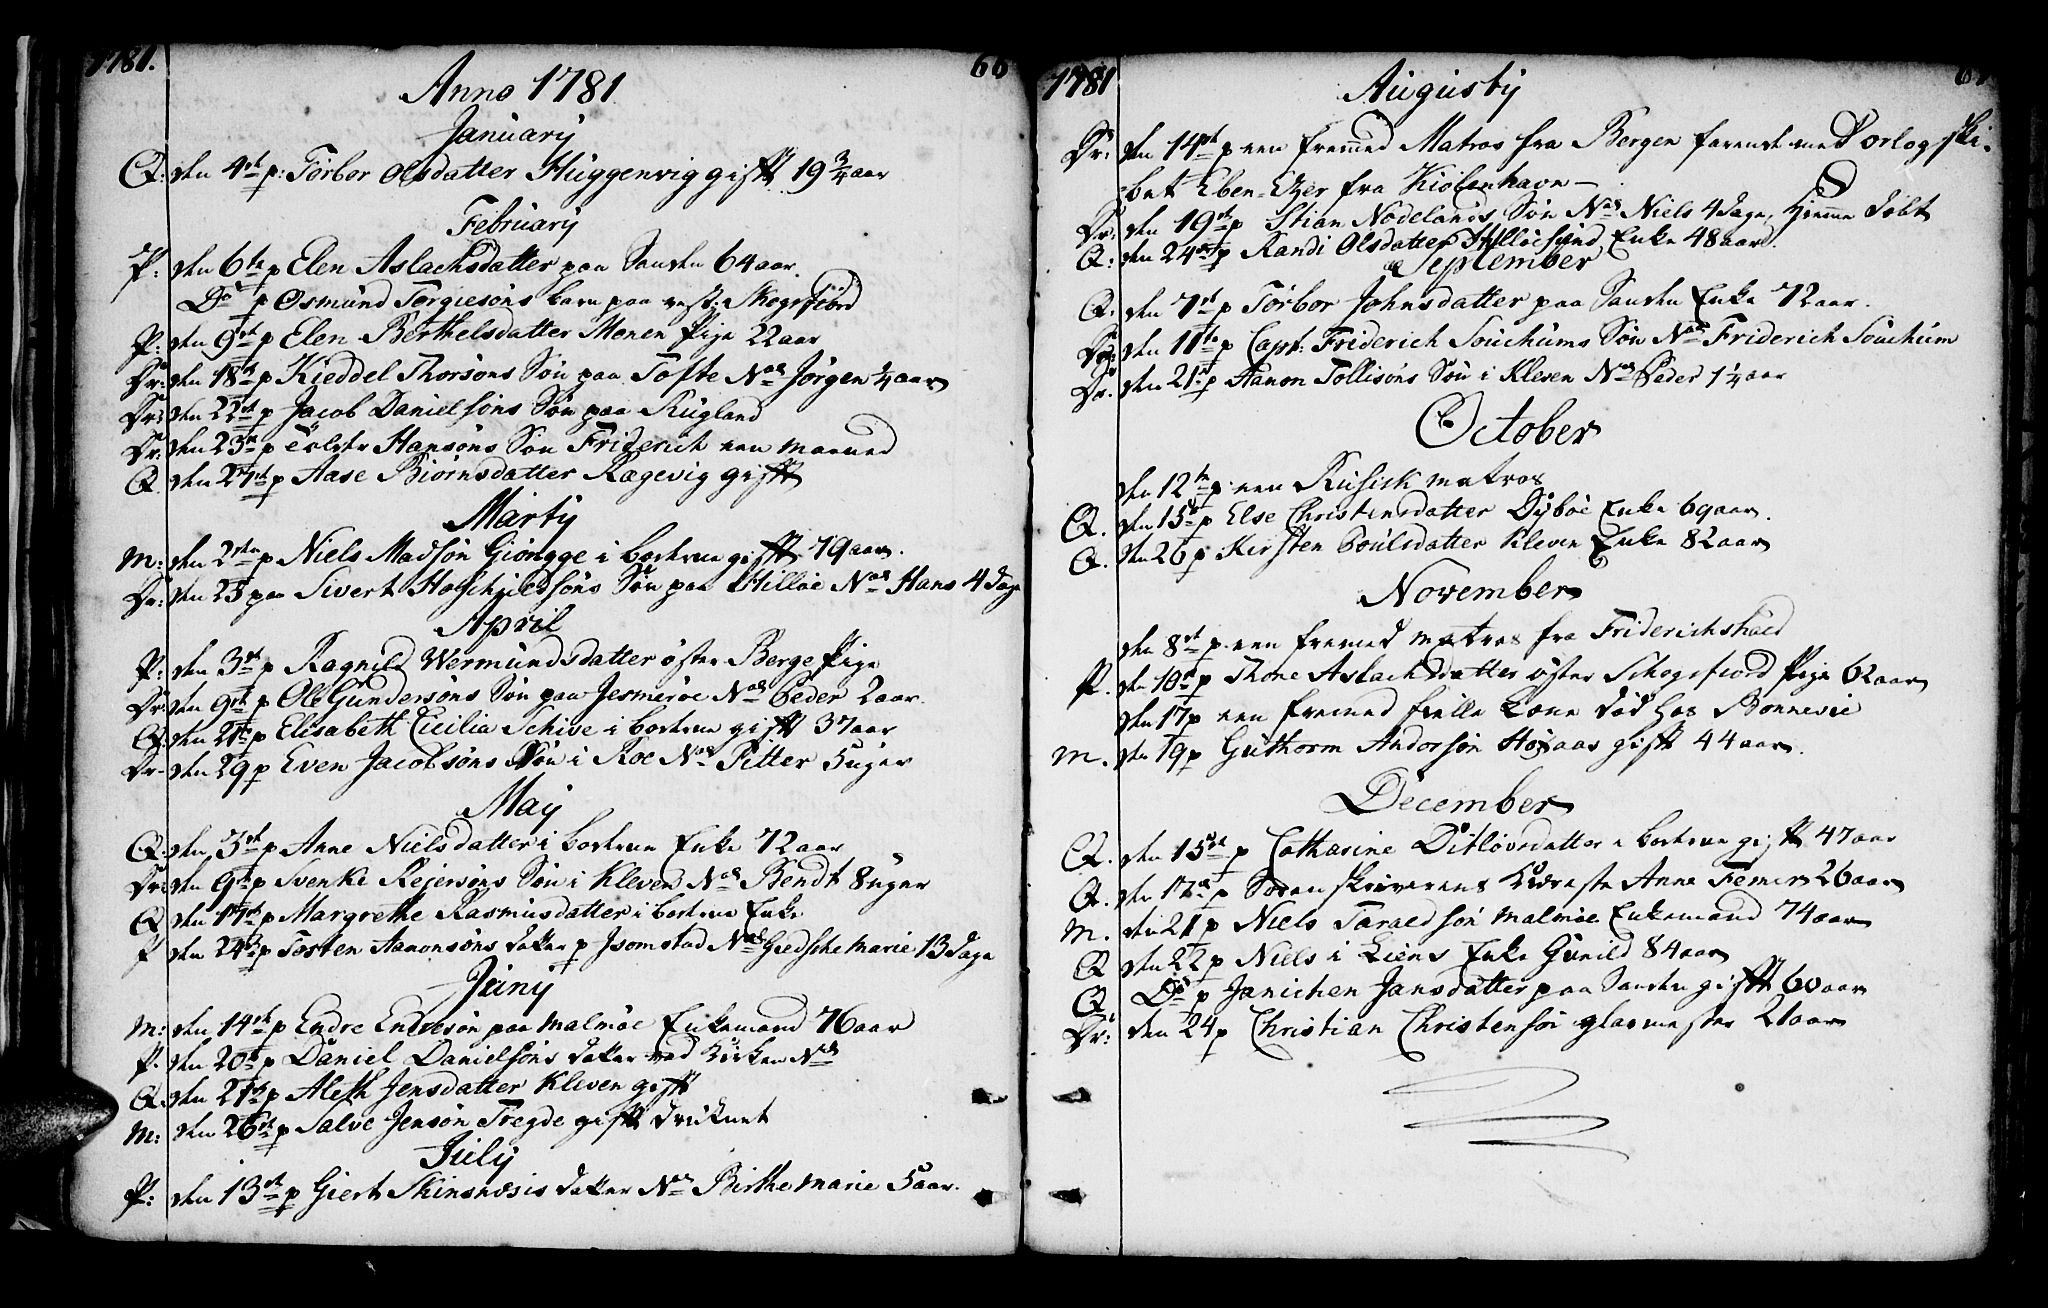 1781. 66
Anno 1781
Januarij
Q: den 4de p: Torbor Olsdatter Huggenvig gift 19 3/4 aar
Februarij
P: den 6te p Elen Aslachsdatter paa Sanden 64 aar.
Do p Osmund Torgiesøns barn paa Skogsfiord
P: den 9de p Elen Berthelsdatter Monen Pige 22 aar
Dr: den 18de p Kieddel Thorsøns Søn paa Tofte Nas Jørgen 1/4 aar
Dr: den 22de p Jacob Danielsøns Søn paa Rugland
Dr. den 23de p Hansøns Søn Friderich een maaned
Q den 27de p Aase Biørnsdatter Ragevig gift
Martij
M: den 2den p Niels Madsøn Giøngge i boehren gift 79 aar.
Dr: den 23 paa Sivert Søn paa Hilløe Nas Hans 4 dage
April
P: den 3de p Ragnild Wermundsdatter øster Berge Pige
Dr: den 9de p Ole Gundersøns Søn paa Jesmerøe Nas Peder 2 aar.
Q: den 21de p Elisabeth Cicilia Schive i gift 37 aar
Dr. den 29 p Even Jacobsøns Søn i Roe Nas Pitter 5 uger
Maij
Q: den 3de p Anne Nielsdatter i Enke 72 aar
Dr: den 9de p Svenke Rejersøns Søn i Kleven Nas Bendt 8 uger
Q den 17de p Margrethe Rasmusdatter i Enke
P den 24de p Tosten Aanonsøns datter p Isomstad Nas Giedsche Marie 13 dage
Junij
M: den 14de p Endre Endresøn paa Malmøe Enkemand 76 aar
P. den 20de p Daniel Danielsøns datter ved Kirken Nas
Q. den 21de p Aleth Jensdatter Kleven gift
M: den 26de p Salve Jensøn Tregde gift druknet
Julij
P: den 13de p Giert Skinsnæsis datter Nas Birthe Marie 5 aar.
1781 67
Augustij
Dr: den 14de p een fremed Matros fra Bergen farende med Orlogski-
bet Eben-Ezer fra Kiøbenhavn
Dr: den 19de p Stian Nodelands Søn Nas Niels 4 dage, hiemme døbt
Q: den 24de p Randi Olsdatter Hilløesund Enke 48 aar.
September
Q. den 7de p Torbor Johnsdatter paa Sanden Enke 72 aar.
Dr: den 11te p Capt: Friderich Souchums Søn Nas Friderich Souchum
Dr. den 21de p Aanon Tollisøns Søn i Klesen Nas Peder 1 1/4 aar
October
den 12te p een Rusisk matros
Q. den 15de p Else Christensdatter Dybøe Enke 69 aar.
Q. den 26 p Kirsten Poulsdatter Kleven Enke 82 aar
November
den 8de p een fremed matros fra Friderichshald
P. den 10de p Thone Aslachsdatter øster Schogsfiord Pige 62 aar
den 17 p een fremed død hos Bonnevie
M. den 19 p Guthorm Andorsøn gift 44 aar.
December
Q. den 15de p Catharine Ditløvsdatter i gift 47 aar
Q. den 17de p Sorenskriverens Kiæreste Anne Femer 26 aar
M. den 21 p Niels Taraldsøn Malmøe Enkemand 74 aar
Q den 22 p Niels i Liens Enke Gunild 84 aar
Q Do p Janichen Jansdatter paa Sanden gift 60 aar
Dr: den 24 p Christian Christensøn glarmester 21 aar